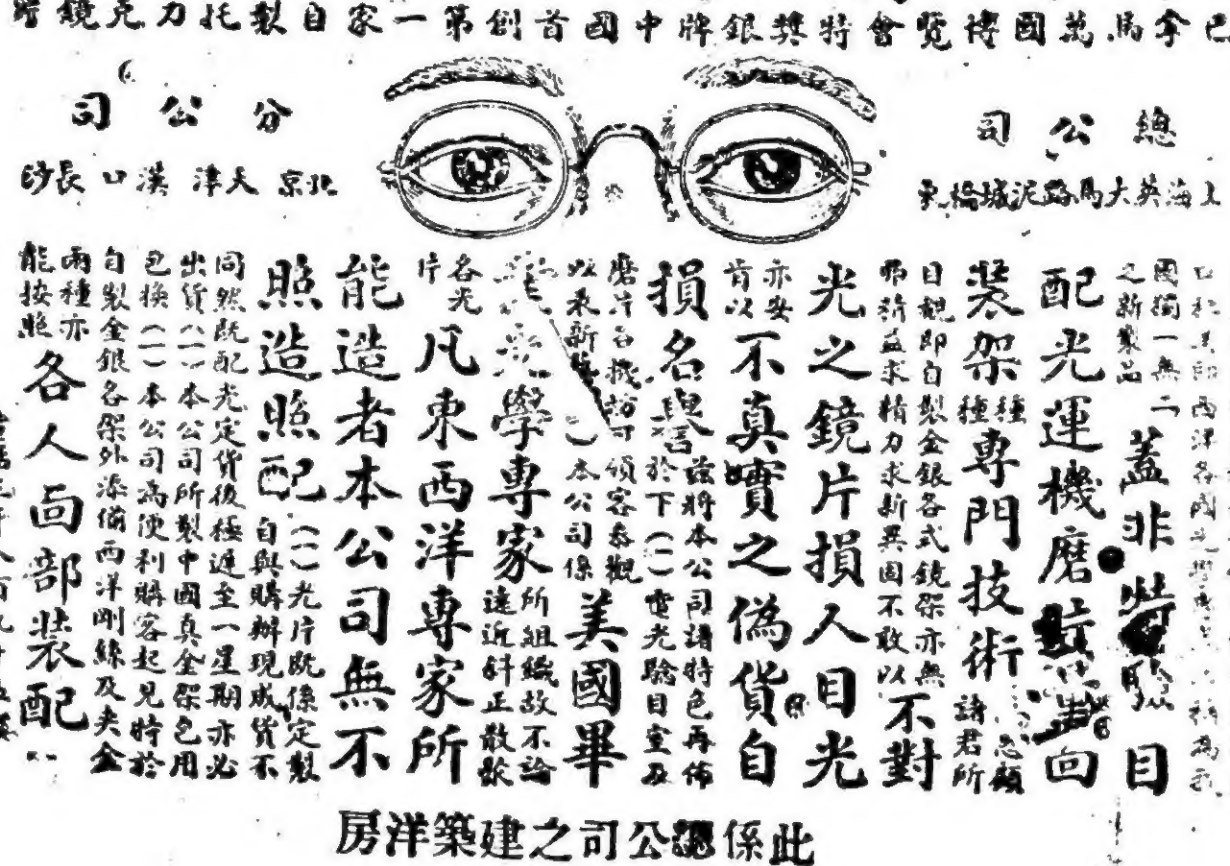 巴拿馬萬國博覽會特獎銀牌中國首創第一家自製托力克鏡
總公司
上海英大馬路泥城橋東
分公司
北京天津漢口長沙
西洋各國光學 稱為我
國獨一無二
之新製品
蓋非特驗目
配光運機磨 向
裝架種種專門技術諸君所
目覩即自製金銀各式鏡架亦無
弗精益求精力求新異固不敢以不對
光之鏡片損人目光
亦安肯以不真實之偽貨自
損名譽茲將本公司諸特色再佈
於下(一)電光驗目室及
磨片各機均可領客參觀
以表新藝(一)本公司係美國畢
業光學專家所組織故不論
遠近斜正散歛
各光片凡東西洋專家所
能造者本公司無不
照造照配(一)光片既係定製
自與購辦現成貨不
同然既配光定貨後極遲至一星期亦必
出貨(一)本公司所製中國真金架包用
包換(一)本公司為便利購客起見特於
自製金銀各架外添備西洋剛絲及夾金
兩種亦能按照各人面部裝配
此係總公司之建築洋房